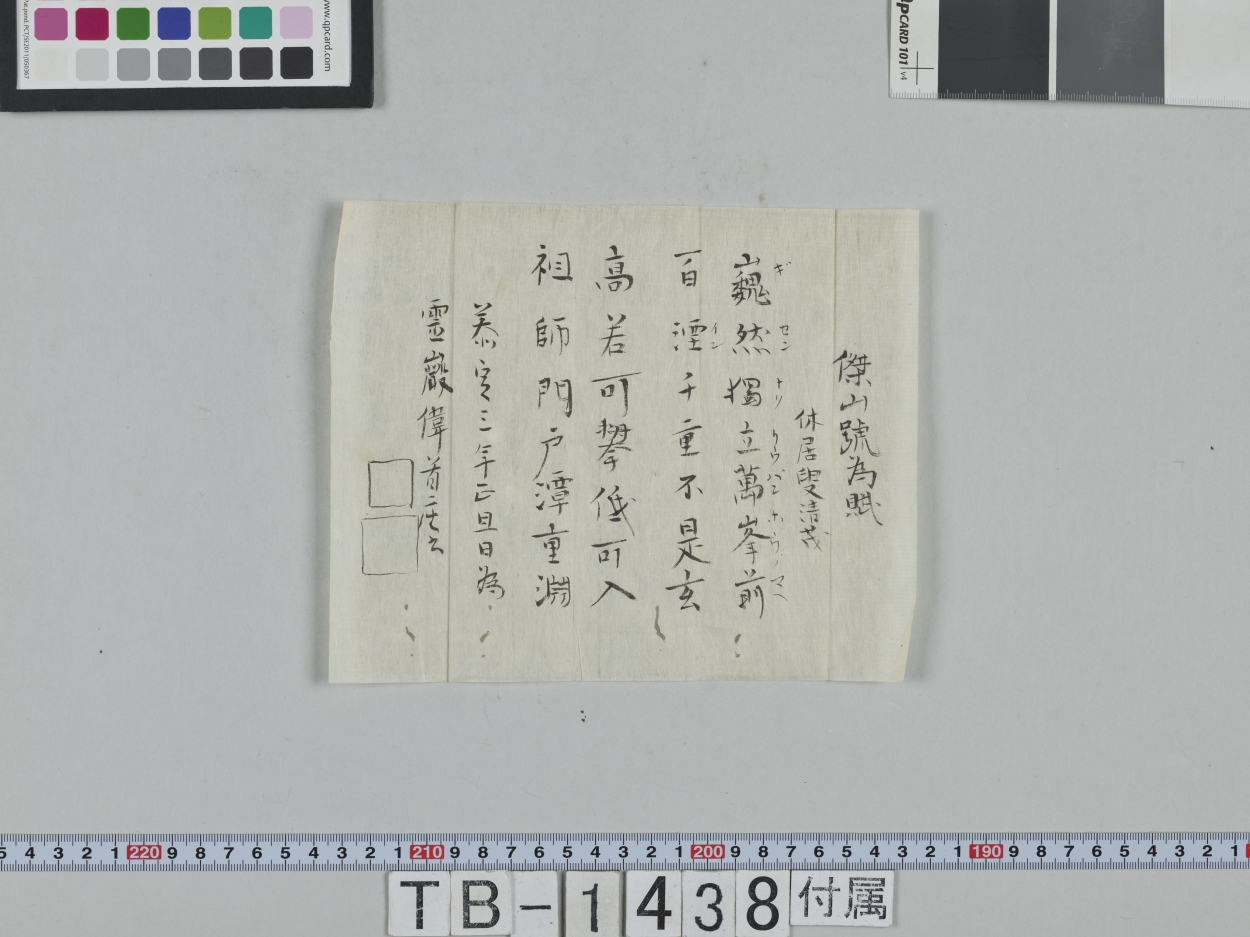 傑山號為賦
休居叟清茂
巍然獨立萬峯前
ギ セン トリ リウ バン ホウノマヘ
百湮千重不是玄
イン
高若可攀低可入
祖師門戶潭重淵
泰定三年正旦日為
靈巖偉首座云
TB-1438付属
5 4 3 2 1 220 9 8 7 6 5 4 3 2 1 210 9 8 7 6 5 4 3 2 1 200 9 8 7 6 5 4 3 2 1 190 9 8 7 6 5 4 3 2 1
www.qpcard.com
QPCARD 101 v4